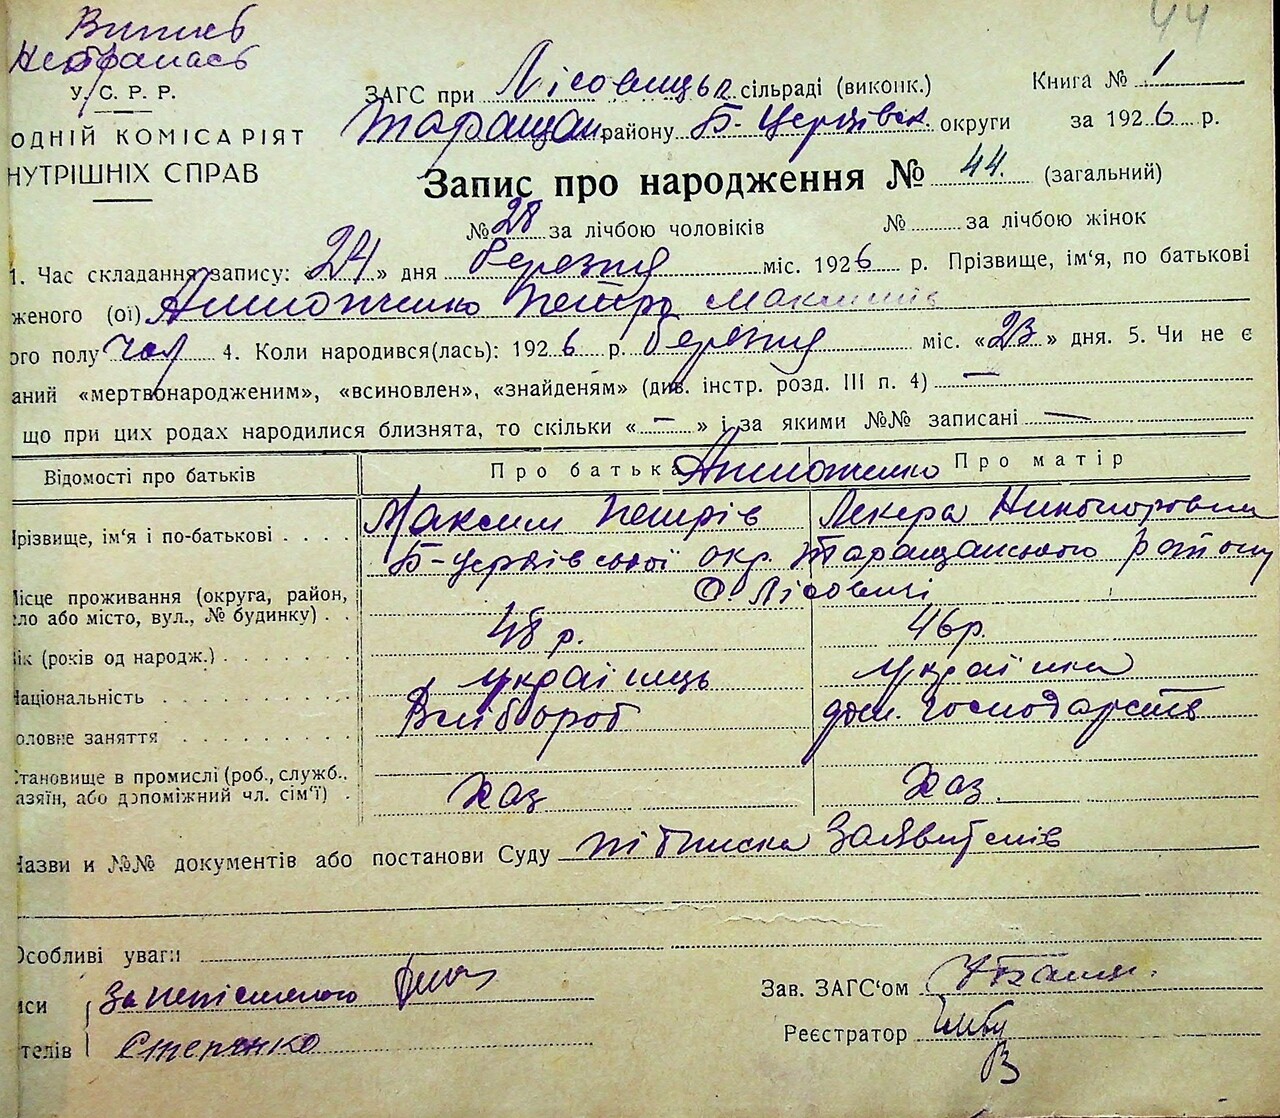 44
Випись
Небралась
У. С. Р. Р.
ОДНІЙ КОМІСАРІЯТ
НУТРІШНІХ СПРАВ
ЗАГС при Лісовицьк. сільраді (виконк.) Книга № 1
Таращан. району Б-Церківськ округи за 1926 р.
Запис про народження № 44. (загальний)
№ 28 за лічбою чоловіків № за лічбою жінок
1. Час складання запису: «24» дня березня міс. 1926 р. Прізвище, ім'я, по батькові
женого (ої) Петро Максимів
ого полу чол 4. Коли народився(лась): 1926 р. березня міс. «23» дня. 5. Чи не є
аний «мертвонародженим», «всиновлен», «знайденям» (див. інстр. розд. III п. 4) —
що при цих родах народилися близнята, то скільки « — » і за якими №№ записані —
Відомості про батьків Про батька Про матір
Прізвище, ім'я і по-батькові Максим Петрів Лекера Никопоровна
Б-церківської окр. Таращанського району
Місце проживання (округа, район, С. Лісовичі
ело або місто, вул., № будинку)
Вік (років од народж.) 48 р. 46 р.
Національність українець українка
оловне заняття Хлібороб дом. господарств
Становище в промислі (роб., служб.,
азяїн, або допоміжний чл. сім'ї) Хаз Хаз.
Назви и №№ документів або постанови Суду підписка Заявителів
Особливі уваги
иси За неписьменого
телів Степенко
Зав. ЗАГС'ом
Реєстратор